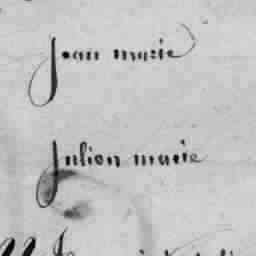 Jean marie
Julien marie